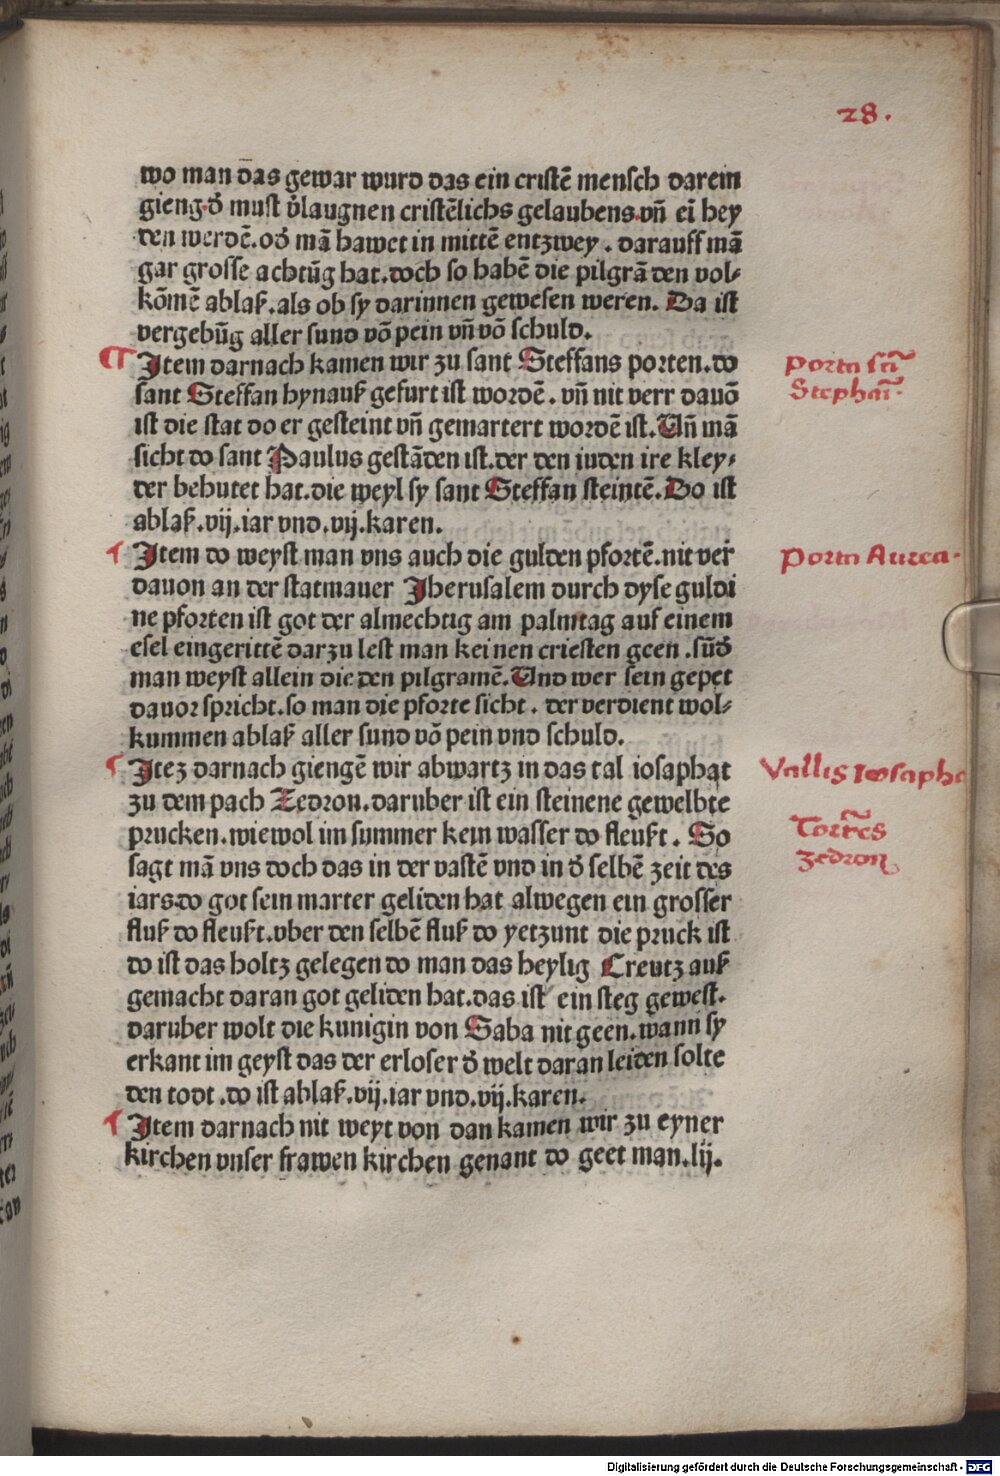 28.
wo man das gewar wurd das ein cristē mensch darein
gieng.đ must v̄laugnen cristēlichs gelaubens.vn̄ ei᷑ hey
den werdē.ođ mā hawet in mittē entzwey. darauff mā
gar grosse achtūg hat.doch so habē die pilgrā den vol⸗
kōmē ablaß.als ob sy darinnen gewesen weren. Da ist
vergebūg aller sund vō pein vn̄ vō schuld.
¶ Item darnach kamen wir zu sant Steffans porten.do
sant Steffan hynauß gefurt ist wordē. vn̄ nit verr dauō
ist die stat do er gesteint vn̄ gemartert wordē ist.Un̄ mā
sicht do sant Paulus gestāden ist.der den iuden ire kley⸗
der behutet hat.die weyl sy sant Steffan steintē.Do ist
ablaß.vij.iar vnd.vij.karen.
¶ Item do weyst man vns auch die gulden pfortē.nit ver
dauon an der statmauer Jherusalem durch dyse guldi
ne pforten ist got der almechtig am palmtag auf einem
esel eingerittē darzu lest man keinen criesten geen .sūđ
man weyst allein die den pilgramē.Und wer sein gepet
dauor spricht.so man die pforte sicht. der verdient wol⸗
kummen ablaß aller sund vō pein vnd schuld.
¶ Itez darnach giengē wir abwartz in das tal iosaphat
zu dem pach Zedron.daruber ist ein steinene gewelbte
prucken.wiewol im summer kein wasser do fleußt. So
sagt mā vns doch das in der vastē vnd in đ selbē zeit des
iars.do got sein marter geliden hat alwegen ein grosser
fluß do fleußt.vber den selbē fluß do yetzunt die pruck ist
do ist das holtz gelegen do man das heylig Creutz auß
gemacht daran got geliden hat.das ist ein steg gewest.
daruber wolt die kunigin von Saba nit geen.wann sy
erkant im geyst das der erloser đ welt daran leiden solte
den todt .do ist ablaß.vij.iar vnd.vij.karen.
¶ Item darnach nit weyt von dan kamen wir zu eyner
kirchen vnser frawen kirchen genant do geet man.lij.
porta sc̄i
Stephāi.
porta Aurea.
Vallis Iosapha
Torrēs
zedron
Digitalisierung gefördert durch die Deutsche Forschungsgemeinschaft - DFG